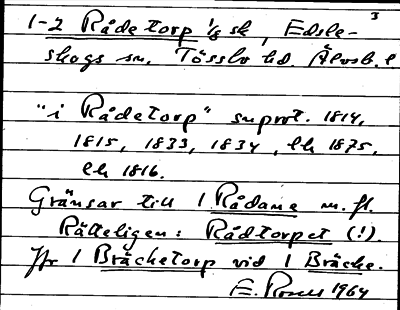 3
1-2 Rådetorp 1/8 sk, Edsle-
skogs sn. Tössbo hd. Älvsb. l
"i Rådetorp" suprot. 1814,
1815, 1833, 1834, lh 1875,
lh 1816.
Gränsar till 1 Rådane m. fl.
Rätteligen: Rådtorpet (!).
Jfr 1 Bräcketorp vid 1 Bräcke.
E. 1964